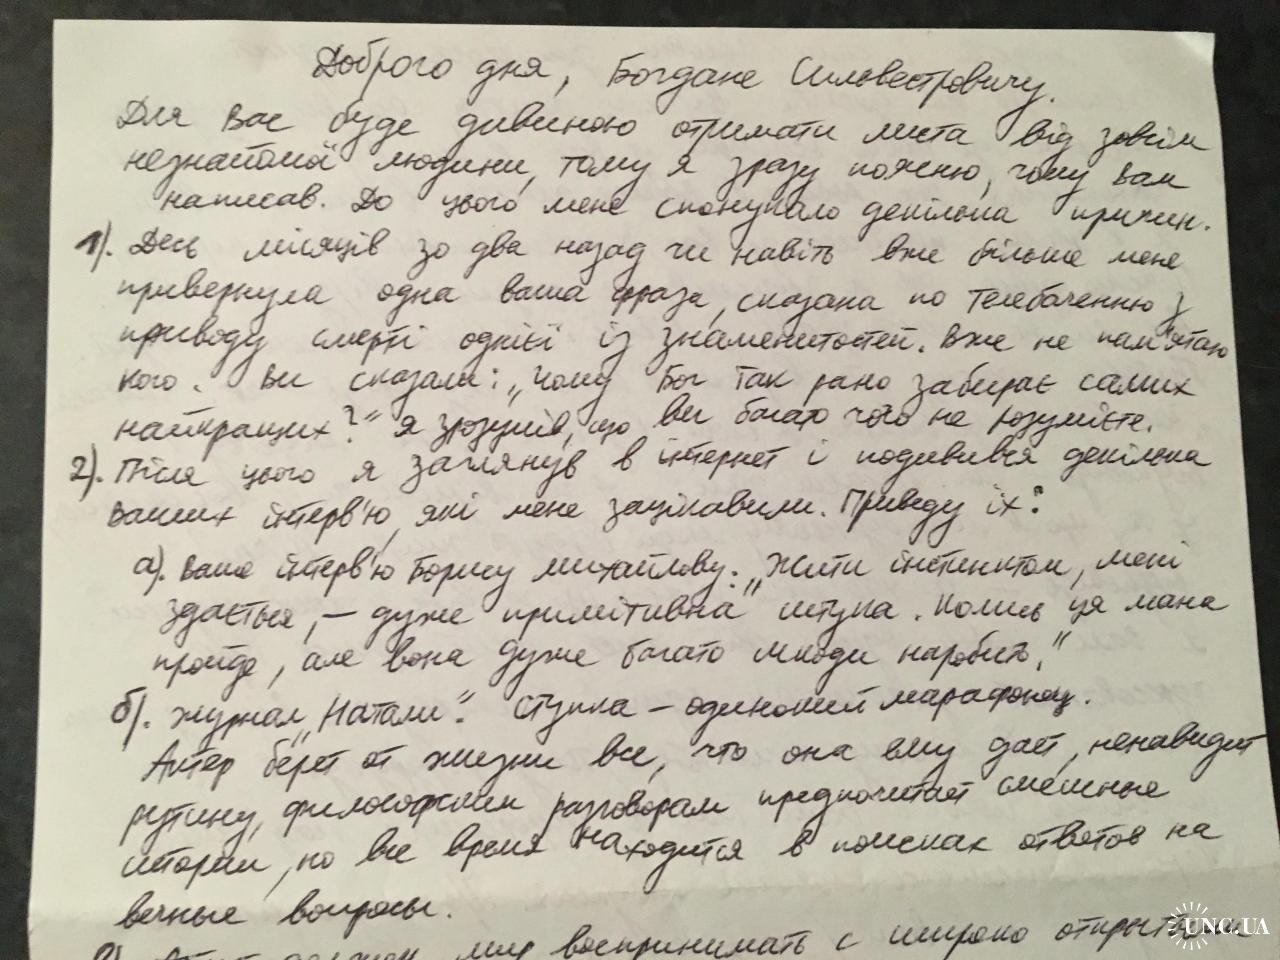 Доброго дня, Богдане Сильвестровичу.
Для Вас буде дивиною отримати листа від зовсім
незнайомої людини, тому я зразу поясню, чому Вам
написав. До цього мене спонукало декілька причин.
1). Десь місяців зо два назад чи навіть вже більше мене
привернула одна ваша фраза, сказана по телебаченню з
приводу смерті однієї із знаменитостей. Вже не пам'ятаю
кого. Ви сказали: „Чому Бог так рано забирає самих
найкращих?" Я зрозумів, що ви багато чого не розумієте.
2). Після цього я заглянув в інтернет і подивився декілька
Ваших інтерв'ю, які мене зацікавили. Приведу їх:
а). Ваше інтерв'ю Борису Михайлову: „Жити інстинктом, мені
здається, — дуже примітивна" штука. Колись ця мана
пройде, але вона дуже багато шкоди наробить."
б). Журнал „Натали". Ступка — одинокий марафонец.
Актер берет от жизни все, что она ему дает, ненавидит
рутину, философским разговорам предпочитает смешные
истории, но все время находится в поисках ответов на
вечные вопросы.
мир воспринимать с широко
UNC.UA